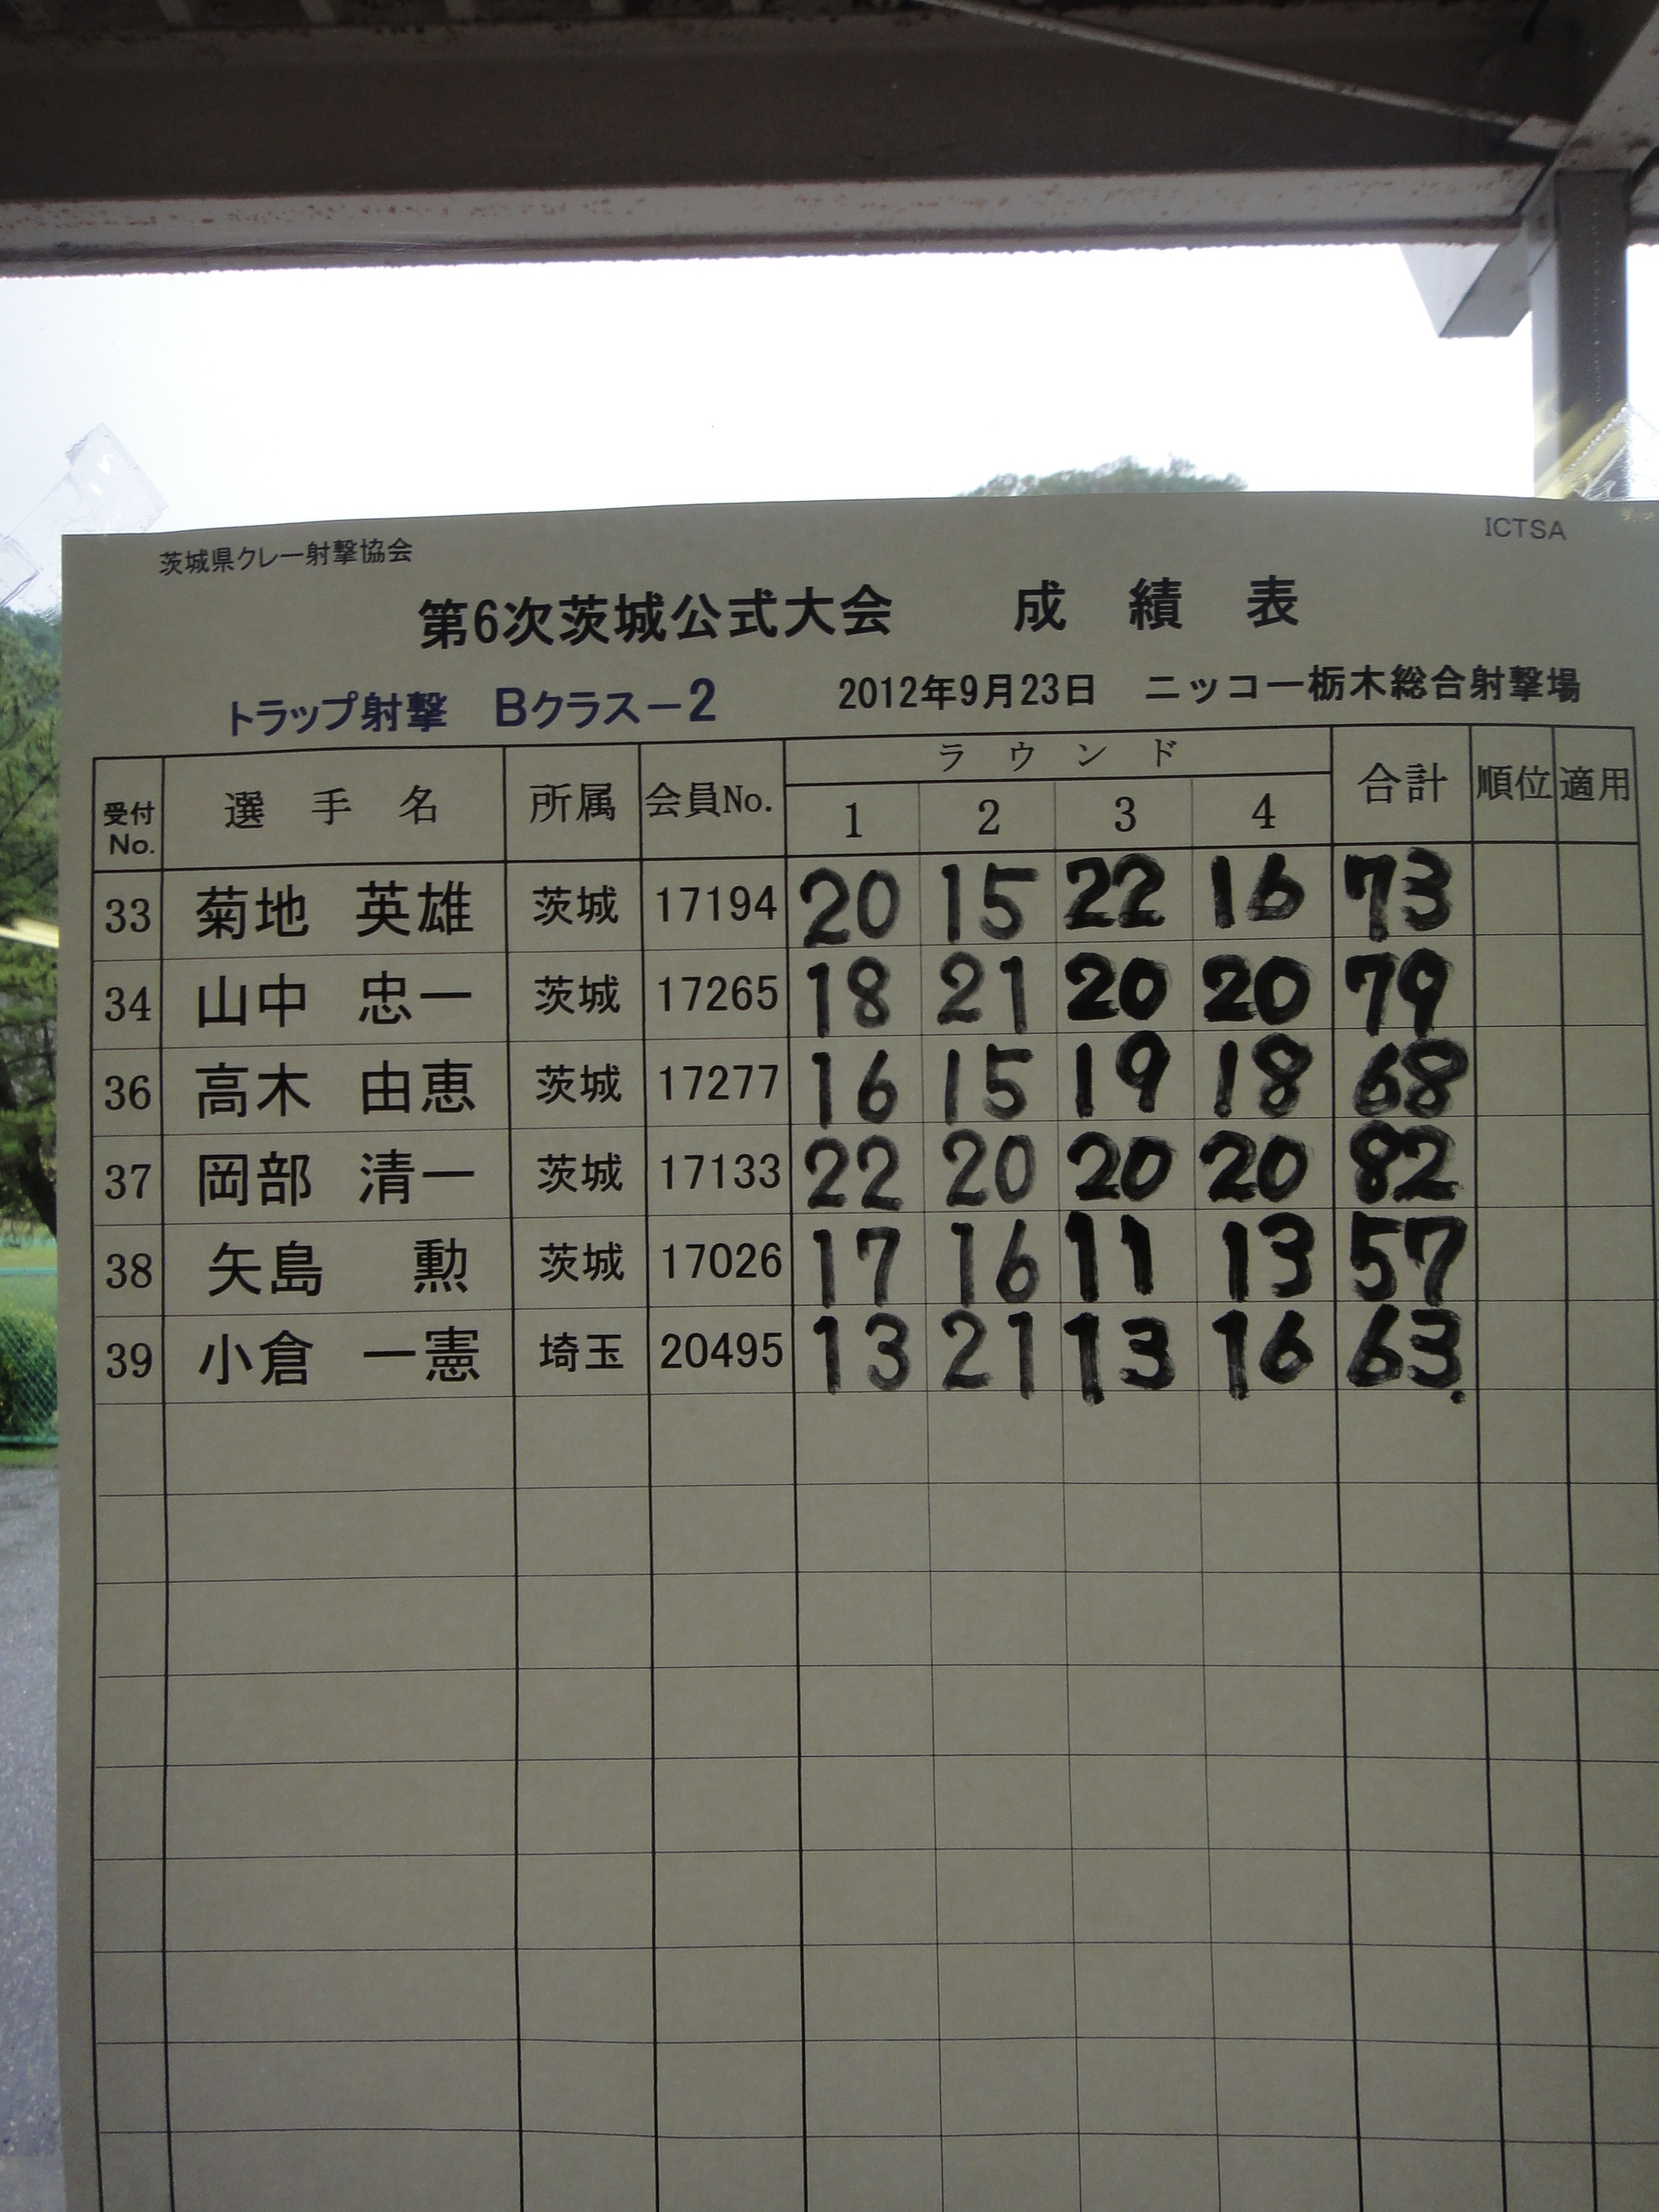 茨城県クレー射撃協会 ICTSA
第6次茨城公式大会 成績表
トラップ射撃 Bクラス－2 2012年9月23日 ニッコー栃木総合射撃場
受付No. 選手名 所属 会員No. ラウンド 合計 順位 適用
1 2 3 4
33 菊地 英雄 茨城 17194 20 15 22 16 73
34 山中 忠一 茨城 17265 18 21 20 20 79
36 高木 由恵 茨城 17277 16 15 19 18 68
37 岡部 清一 茨城 17133 22 20 20 20 82
38 矢島 勲 茨城 17026 17 16 11 13 57
39 小倉 一憲 埼玉 20495 13 21 13 16 63.